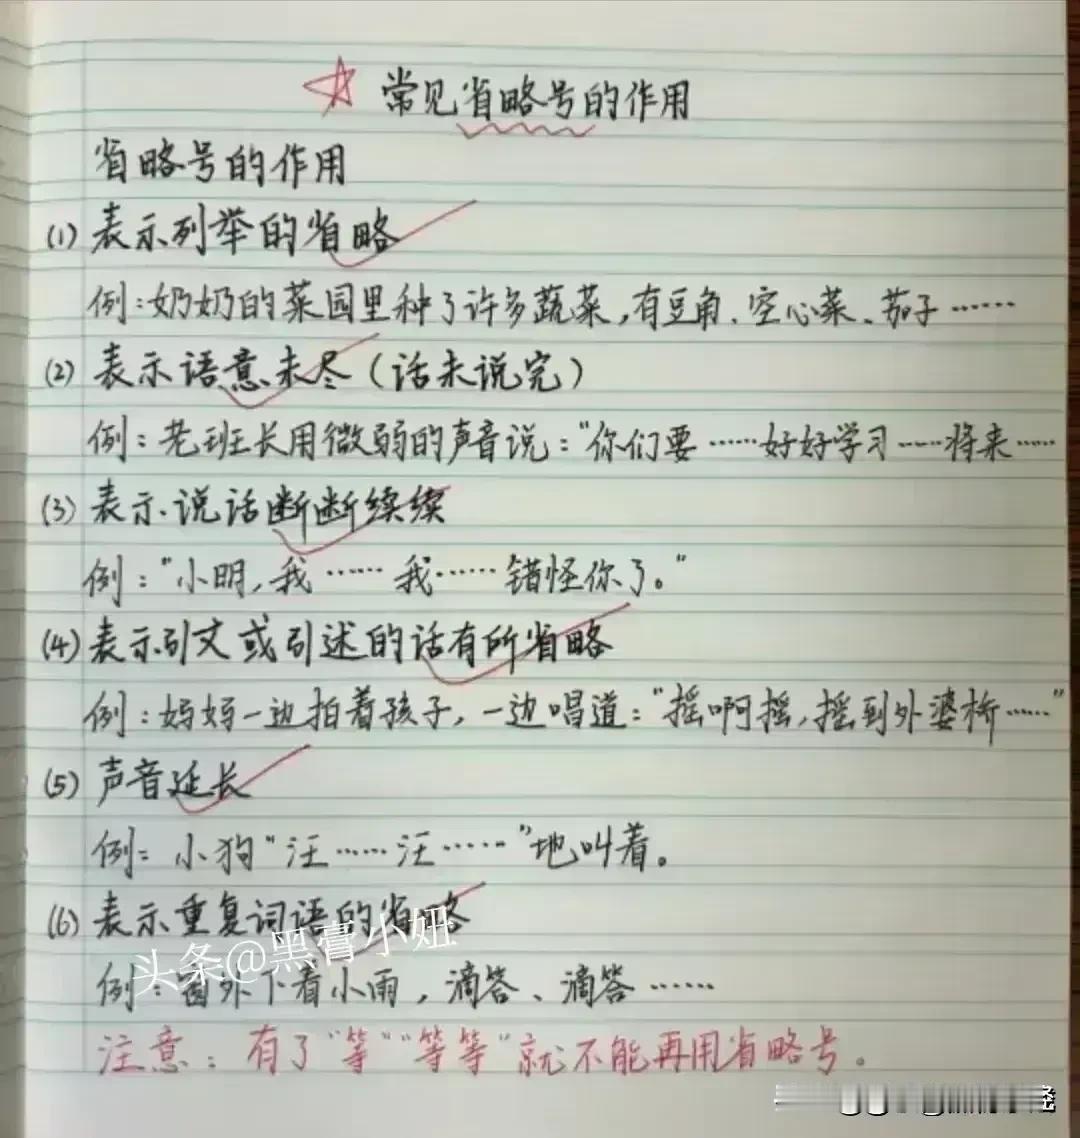 常见省略号的作用
省略号的作用
(1) 表示列举的省略
例:奶奶的菜园里种了许多蔬菜,有豆角、空心菜、茄子……
(2) 表示语意未尽(话未说完)
例:老班长用微弱的声音说:"你们要……好好学习……将来……
(3) 表示说话断断续续
例:"小明,我……我……错怪你了。"
(4) 表示引文或引述的话有所省略
例:妈妈一边拍着孩子,一边唱道:"摇啊摇,摇到外婆桥……"
(5) 声音延长
例:小狗"汪……汪……"地叫着。
(6) 表示重复词语的省略
头条@黑膏小妞
例:窗外下着小雨,滴答、滴答……
注意:有了"等""等等"就不能再用省略号。